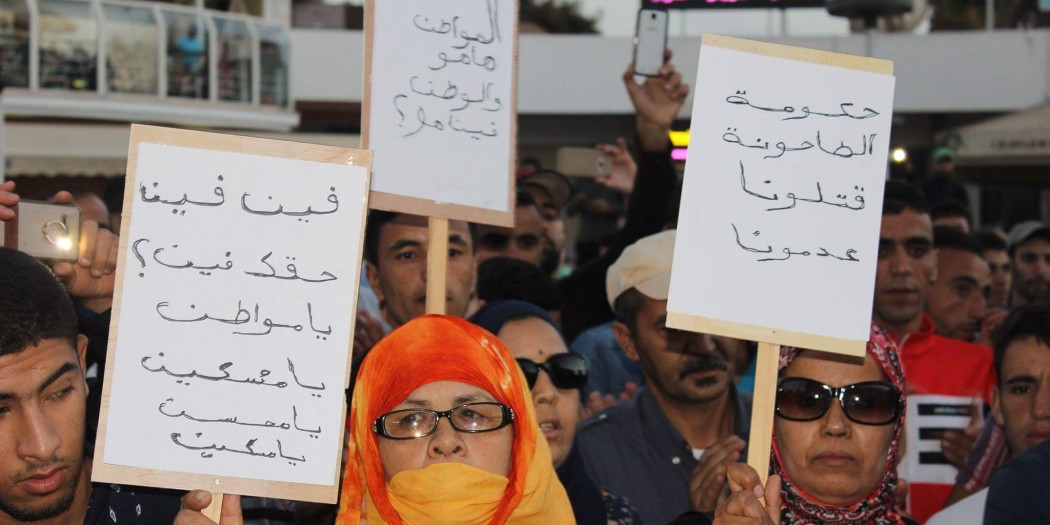 فين فينا
حقك فين؟
يا مواطن
يا مسكين
يا محسن
يا مسكين
المواطن
هاهو
والوطن
فيناهو؟
حكومة
الطاحونة
قتلونا
عدمونا